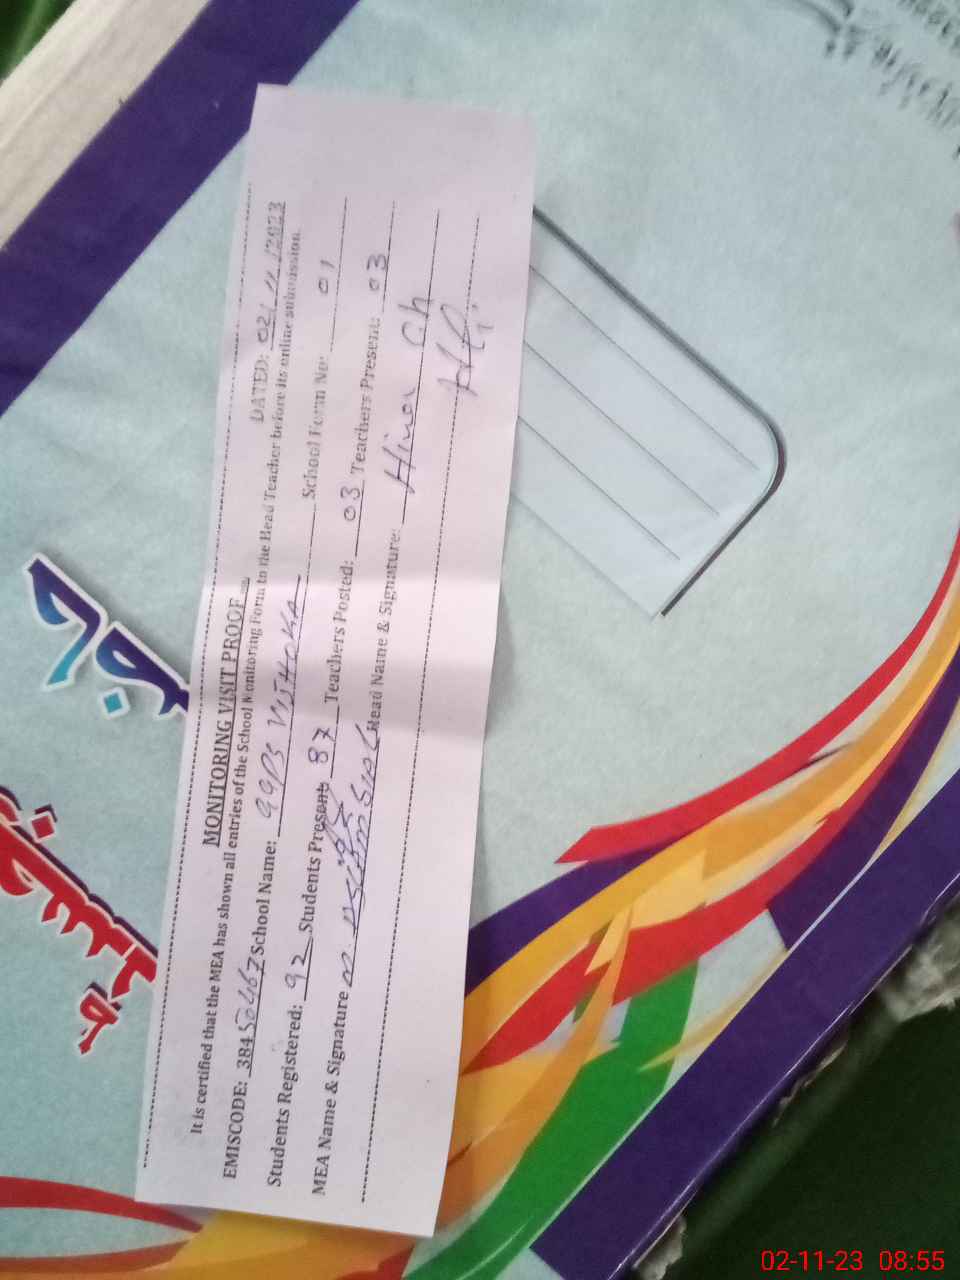 MONITORING VISIT PROOF
DATED: 02/11/2023
It is certified that the MEA has shown all entries of the School Monitoring Form to the Head Teacher before its online submission
EMISCODE: 38450467 School Name: GGPS VISHOKA School Form No: 01
Students Registered: 92 Students Present: 87 Teachers Posted: 03 Teachers Present: 03
MEA Name & Signature Head Name & Signature: Hina
02-11-23 08:55